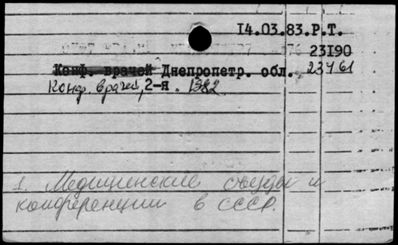 14.03.83.Р.Т.
23190
Конф. врачей Днепропетр. обл. 23461
Конф. врачей, 2-я. 1982.
1. Медицинские съезды и
конференции в СССР.